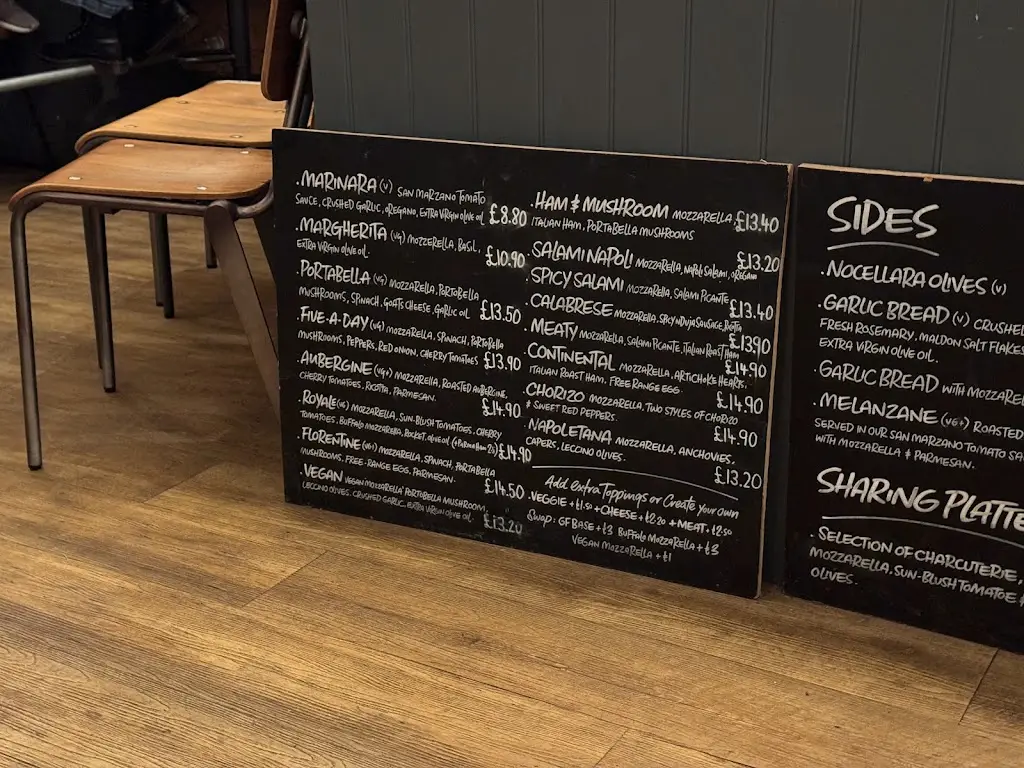 .MARINARA (V) SAN MARZANO TOMATO
SAUCE, CRUSHED GARLIC, OREGANO, EXTRA VIRGIN OLIVE OIL £8.80
.MARGHERITA (VG) MOZZERELLA, BASIL,
EXTRA VIRGIN OLIVE OIL. £10.90
.PORTABELLA (VG) MOZZARELLA, PORTOBELLA
MUSHROOMS, SPINACH, GOATS CHEESE, GARLIC OIL £13.50
.FIVE-A-DAY (VG) MOZZARELLA, SPINACH, PORTOBELLA
MUSHROOMS, PEPPERS, RED ONION, CHERRY TOMATOES £13.90
.AUBERGINE (VG+) MOZZARELLA, ROASTED AUBERGINE,
CHERRY TOMATOES, RICOTTA, PARMESAN. £14.90
.ROYALE (VG) MOZZARELLA, SUN-BLUSH TOMATOES, CHERRY
TOMATOES, BUFFALO MOZZARELLA, ROCKET, OLIVE OIL (+PARMA HAM 2.) £14.90
.FLORENTINE (VG+) MOZZARELLA, SPINACH, PORTABELLA
MUSHROOMS, FREE-RANGE EGG, PARMESAN. £14.50
.VEGAN VEGAN MOZZARELLA, PORTABELLA MUSHROOM,
LECCINO OLIVES, CRUSHED GARLIC, EXTRA VIRGIN OLIVE OIL. £13.20
.HAM & MUSHROOM MOZZARELLA, £13.40
ITALIAN HAM, PORTABELLA MUSHROOMS
.SALAMI NAPOLI MOZZARELLA, NAPOLI SALAMI, OREGANO £13.20
SPICY SALAMI MOZZARELLA, SALAMI PICANTE £13.40
.CALABRESE MOZZARELLA, SPICY NDUJA SAUSAGE, RICOTTA £13.90
.MEATY MOZZARELLA, SALAMI PICANTE, ITALIAN ROAST HAM £14.90
.CONTINENTAL MOZZARELLA, ARTICHOKE HEARTS,
ITALIAN ROAST HAM, FREE RANGE EGG. £14.90
.CHORIZO MOZZARELLA, TWO STYLES OF CHORIZO
& SWEET RED PEPPERS. £14.90
.NAPOLETANA MOZZARELLA, ANCHOVIES,
CAPERS, LECCINO OLIVES. £13.20
Add Extra Toppings or Create your own
.VEGGIE +£1.50 +CHEESE +£2.20 +MEAT +£2.50
SWAP: GF BASE +£3 BUFFALO MOZZARELLA +£3
VEGAN MOZZARELLA +£1
SIDES
.NOCELLARA OLIVES (V)
.GARLIC BREAD (V) CRUSHED
FRESH ROSEMARY, MALDON SALT FLAKES
EXTRA VIRGIN OLIVE OIL.
.GARLIC BREAD WITH MOZZAREL
.MELANZANE (VG+) ROASTED
SERVED IN OUR SAN MARZANO TOMATO SA
WITH MOZZARELLA & PARMESAN.
SHARING PLATTE
.SELECTION OF CHARCUTERIE,
MOZZARELLA, SUN-BLUSH TOMATOE &
OLIVES.